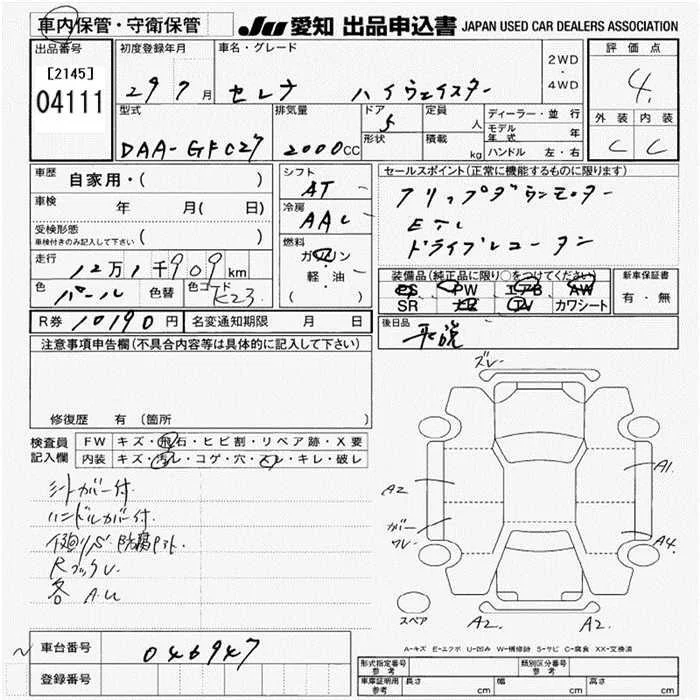 車内保管・守衛保管
JU 愛知 出品申込書 JAPAN USED CAR DEALERS ASSOCIATION
出品番号
[2145]
04111
初度登録年月
29 7月
車名・グレード
セレナ ハイウェイスター
2WD
・
4WD
評価点
4
型式
DAA-GFC27
排気量
2000cc
ドア
5
形状
定員
人
積載
kg
ディーラー・並行
モデル年式 年
ハンドル 左・右
外装 内装
C C
車歴
自家用・( )
車検
年 月( 日)
受検形態
車検付きのみ記入して下さい ( )
走行
12万1千909km
色
パール
色替
色コード
K23
シフト
AT
冷房
AAC
燃料
ガソリン
軽・油
( )
セールスポイント(正常に機能するものに限ります)
フリップダウンモニター
ETC
ドライブレコーダー
装備品(純正品に限り○をつけてください)
PS PW エアB AW
SR ナビ TV カワシート
新車保証書
有・無
R券 10190円
名変通知期限 月 日
後日品
注意事項申告欄(不具合内容等は具体的に記入して下さい)
修復歴 有(箇所 )
検査員記入欄
FW キズ・飛石・ヒビ割・リペア跡・X要
内装 キズ・汚レ・コゲ・穴・スレ・キレ・破レ
シートカバー付
ハンドルカバー付
下廻りS 防腐
各 AU
ズレ
A2
A1
カバー
ワレ
A4
スペア
A2
A2
A-キズ E-エクボ U-凹み W-補修跡 S-サビ C-腐食 XX-交換済
車台番号
046947
登録番号
形式指定番号
参考
類別区分番号
参考
車庫証明用
参考
長さ cm
幅 cm
高さ cm